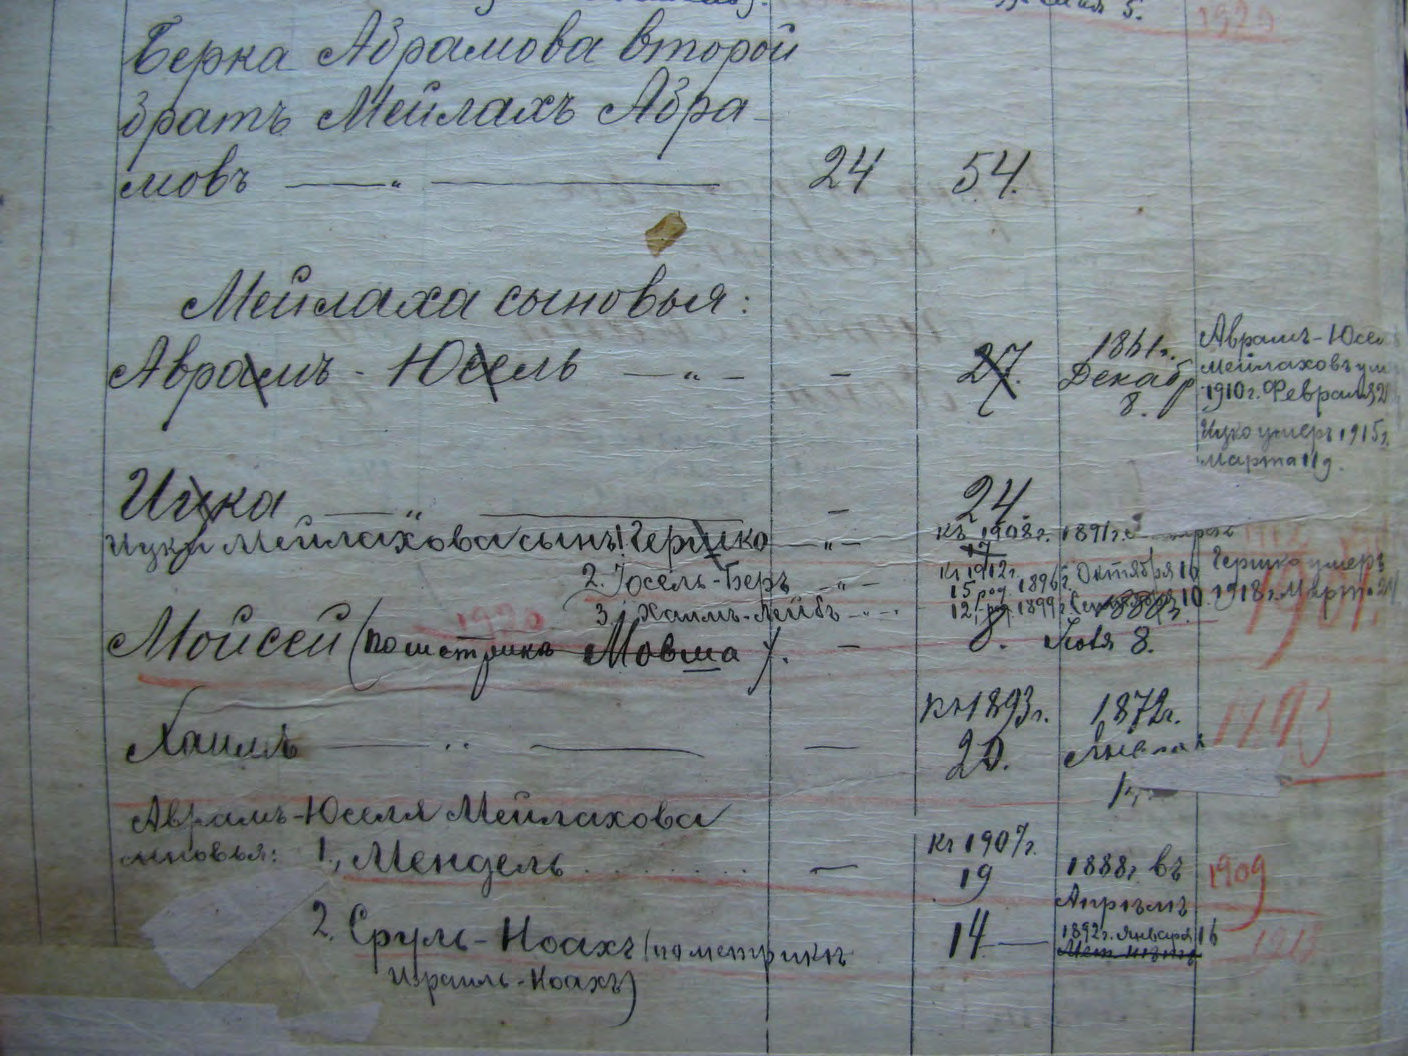 1929
Берка Абрамова второй
братъ Мейлахъ Абра-
мовъ — „ — 24 54.
Мейлаха сыновья:
Аврамъ-Юсель — „ — - 27. 1861г. Декабр 8. Аврамъ-Юсел
Мейлаховъ ум
1910г. Февраля 2
Ицко умеръ 1915г.
Марта 11 д.
Ицка — „ — - 24.
Ицки Мейлахова сынъ 1. Гершко — „ — къ 1908г. 17 1891г.
2. Іосель-Беръ — „ — къ 1912г. 15 род. 1896г. Октября 10 Гершко умеръ
3. Хаимъ-Лейбъ — „ — 12, род. 1899г. 10 1918г. Марта
Мойсей (по метрикѣ Мовша). - 8. Ноя 8.
Хаимъ — „ — - къ 1893г. 20. 1872г. Января 1893
Аврамъ-Юселя Мейлахова
сыновья: 1., Мендель - къ 1907г. 19 1888г. въ Апрѣлѣ 1909
2. Сруль-Ноахъ (по метрикѣ 14 — 1892г. Января 16
Израиль-Ноахъ)